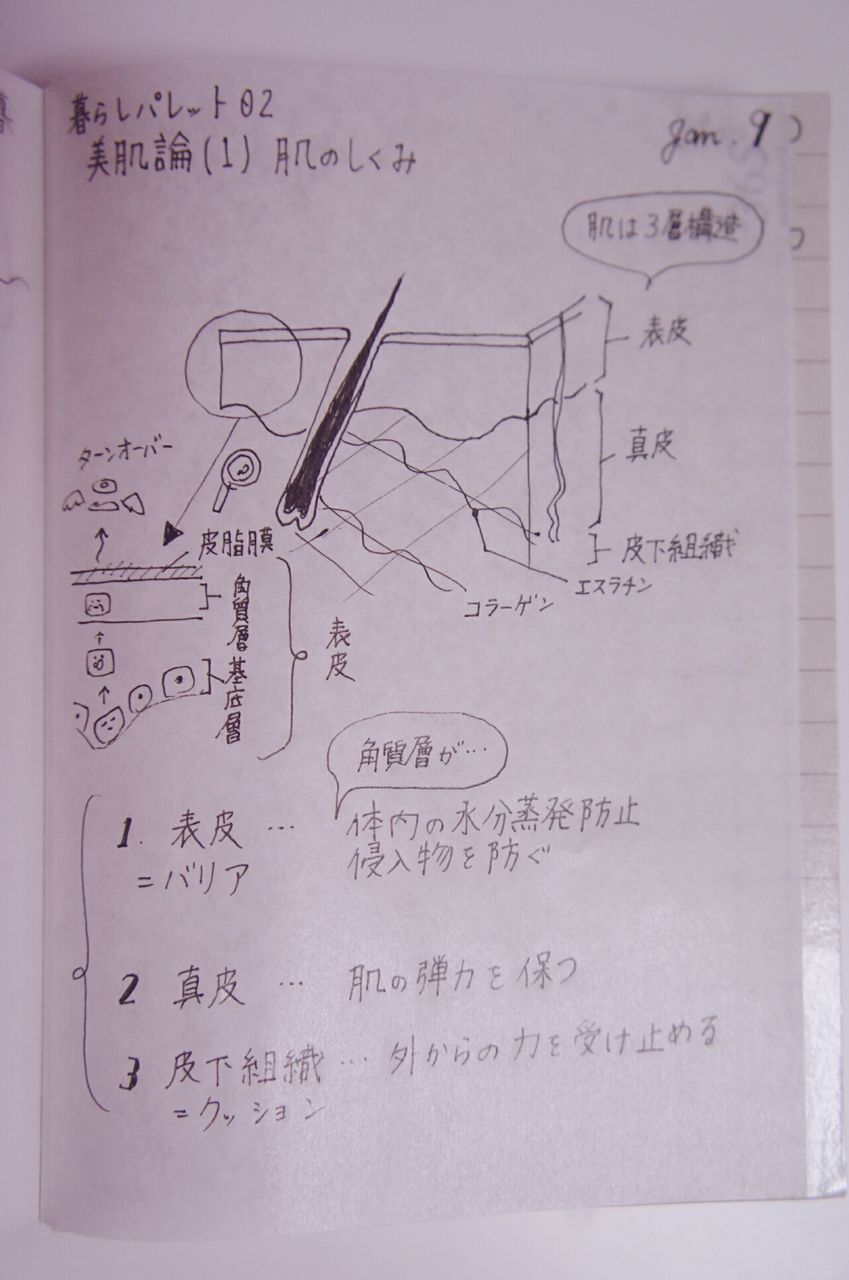 暮らしパレット02
美肌論(1) 肌のしくみ
Jan. 9
肌は3層構造
表皮
真皮
皮下組織
エスラチン
コラーゲン
ターンオーバー
皮脂膜
角質層
基底層
表皮
角質層が…
1. 表皮 … 体内の水分蒸発防止
=バリア 侵入物を防ぐ
2 真皮 … 肌の弾力を保つ
3 皮下組織 … 外からの力を受け止める
=クッション